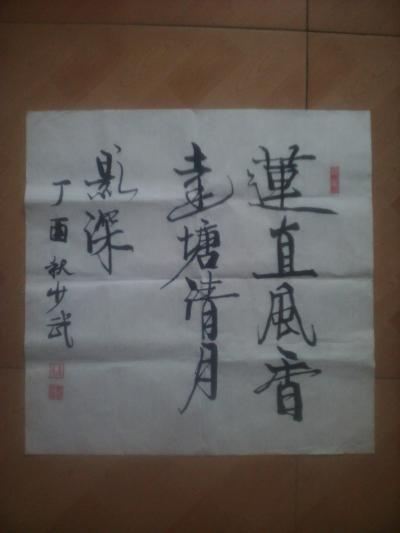 蓮直風香
遠塘清月
影深
丁酉秋少武